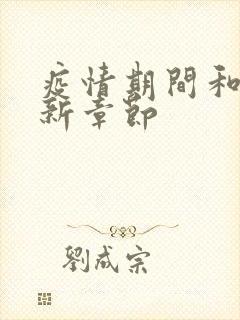 疫情期間和
新章節
劉成宗